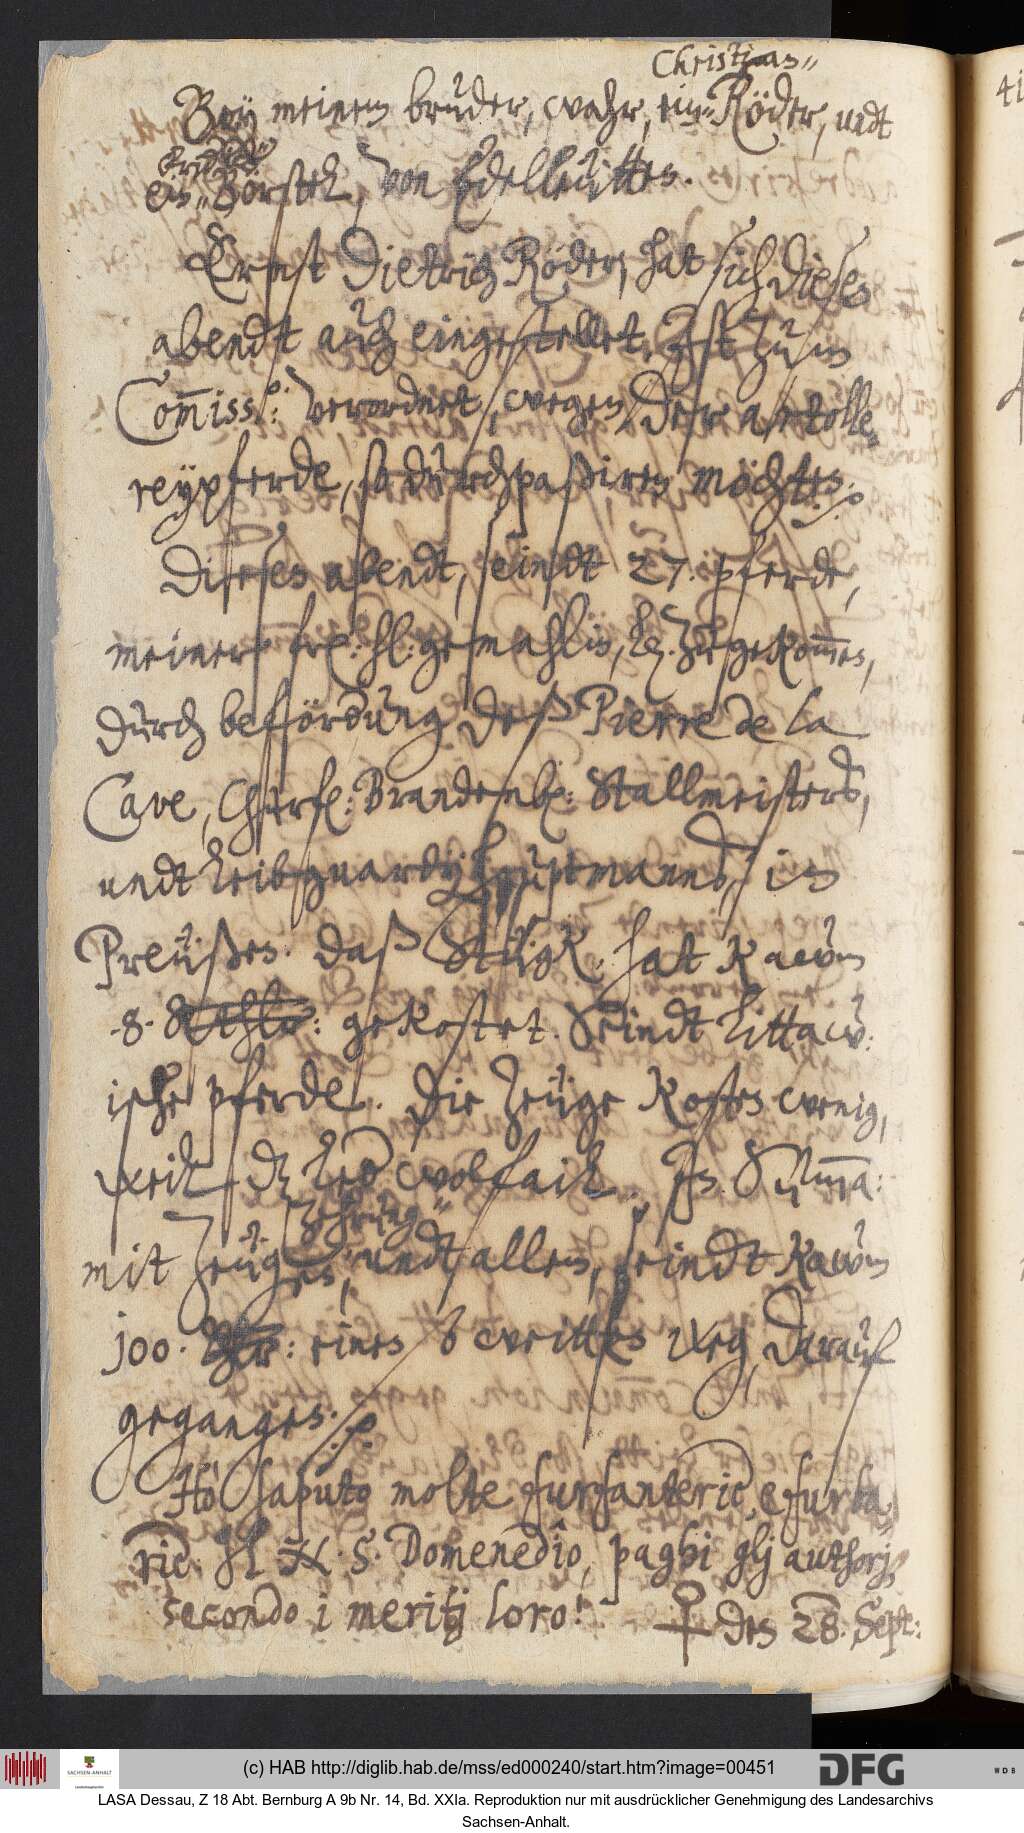 Christian"
Bey meinem bruder, wahr, ein" Röder, undt
ein" Börstel, von Edelleütten.
Ernst Dietrich Röder, hat sich diesen
abendt auch eingestellet. Ist zum
Com̅iss:o verordnet, wegen der artolle„
reypferde, so durchpaßiren möchten.
Diesen abendt, seindt 27. pferde,
meiner frl: hl: gemahlin, zugekom̅en,
durch beförderung deß Pierre de la
Cave, Churfl: Brandenb: Stallmeisters,
undt leibguardyhauptmanns, in
Preüßen. Daß Stügk, hat kaum
8. Rthlr: gekostet. Seindt Littaw:
ische pferde. Die Zeüge kosten wenig,
weil dz leder wolfail. In Sum̅a:
Zehrung"
mit Zeügen, undt allem, seindt kaum
100. Thlr: eines weitten Weg, darauf
gegangen.
Hò saputo molte furfanterie, e furba„
rie. Jl N. S. Domenedîo, paghi glj authorj,
secondo i meritj loro!
den 28. Sept:
(c) HAB http://diglib.hab.de/mss/ed000240/start.htm?image=00451
SACHSEN-ANHALT
DFG
WDB
LASA Dessau, Z 18 Abt. Bernburg A 9b Nr. 14, Bd. XXIa. Reproduktion nur mit ausdrücklicher Genehmigung des Landesarchivs
Sachsen-Anhalt.